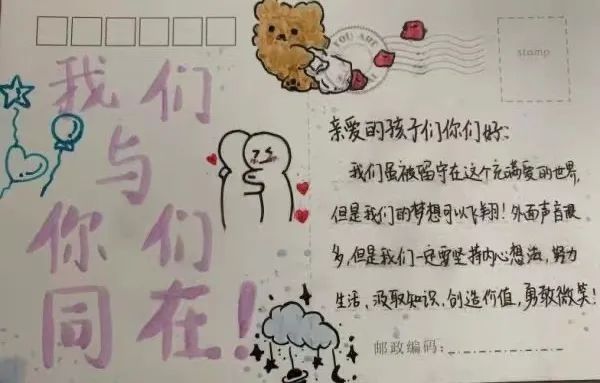 我们
与
你们
同在!
YOU ARE
stamp
亲爱的孩子们你们好:
我们虽被留守在这个充满爱的世界,
但是我们的梦想可以飞翔!外面声音很
多,但是我们一定要坚持内心想法,努力
生活、汲取知识,创造价值,勇敢微笑!
邮政编码: